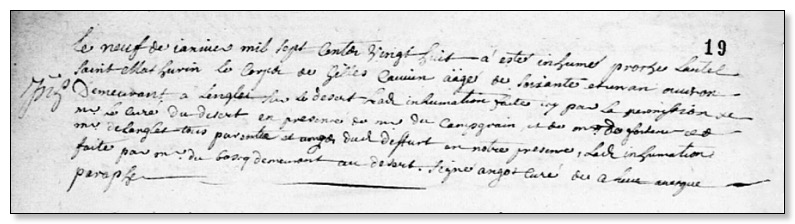 19
Le neuf de ianvier mil sept cents vingt huit a esté inhumé proche lautel
saint Mathurin le corps de Gilles Cauvin aagé de soixante et un an ou environ
Demeurant a Lenglet sur le desert Lad inhumation faite icy par la permission de
mr le Curé du desert en presence de mr du Campgrain, et de mr et de
mr de Langlet tous parents et dud deffunt en notre presence, Lad inhumation
faite par mr du bosq demeurant au desert. Signé angot Curé de avec
paraphe